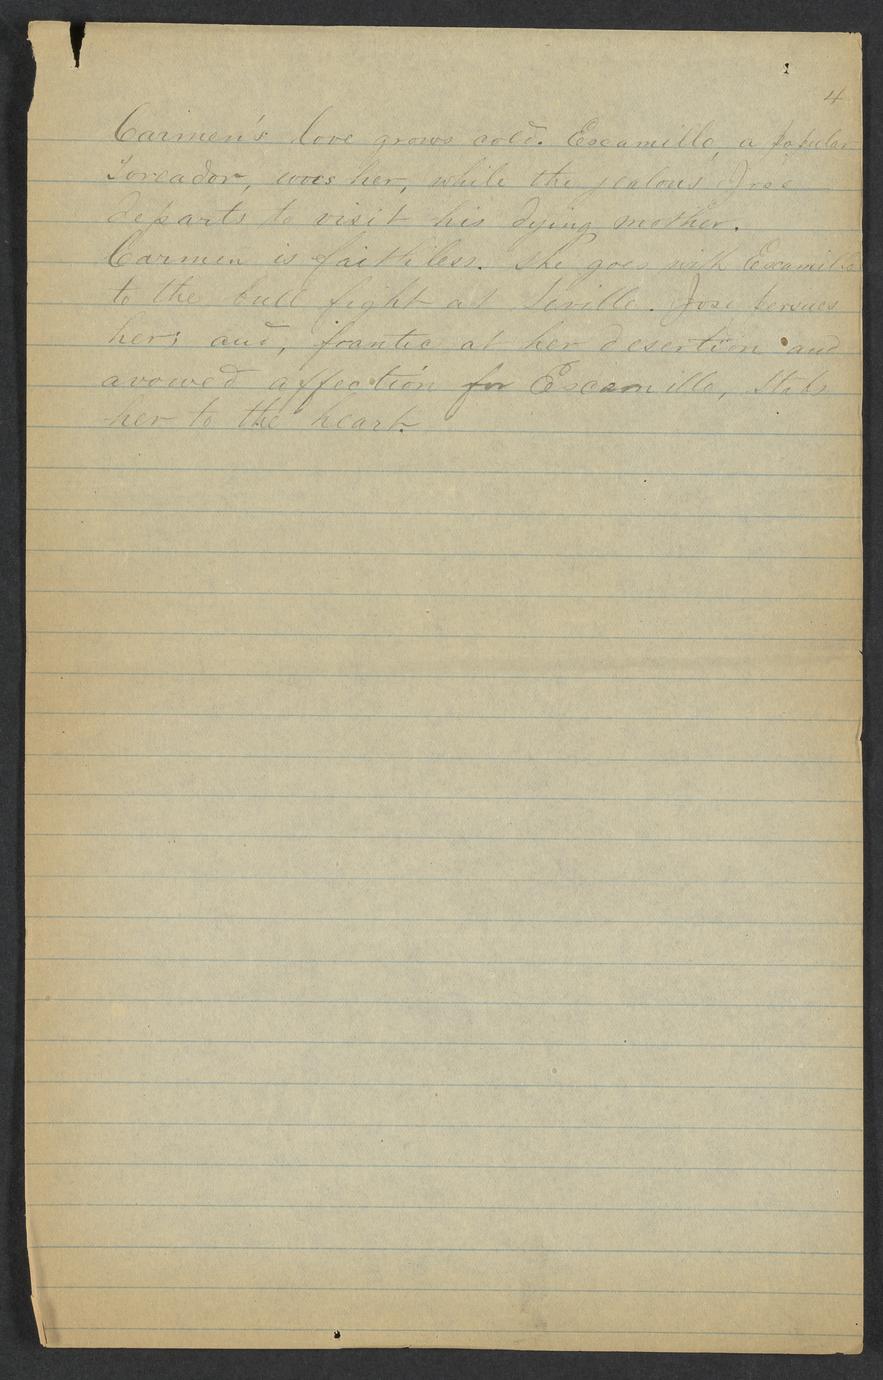 4
Carmen's love grows cold. Escamillo, a popular
Toreador, woos her, while the jealous Jose
departs to visit his dying mother.
Carmen is faithless. She goes with Escamillo
to the bull fight at Seville. Jose persues
her; and, frantic at her desertion and
avowed affection for Escamillo, stabs
her to the heart.